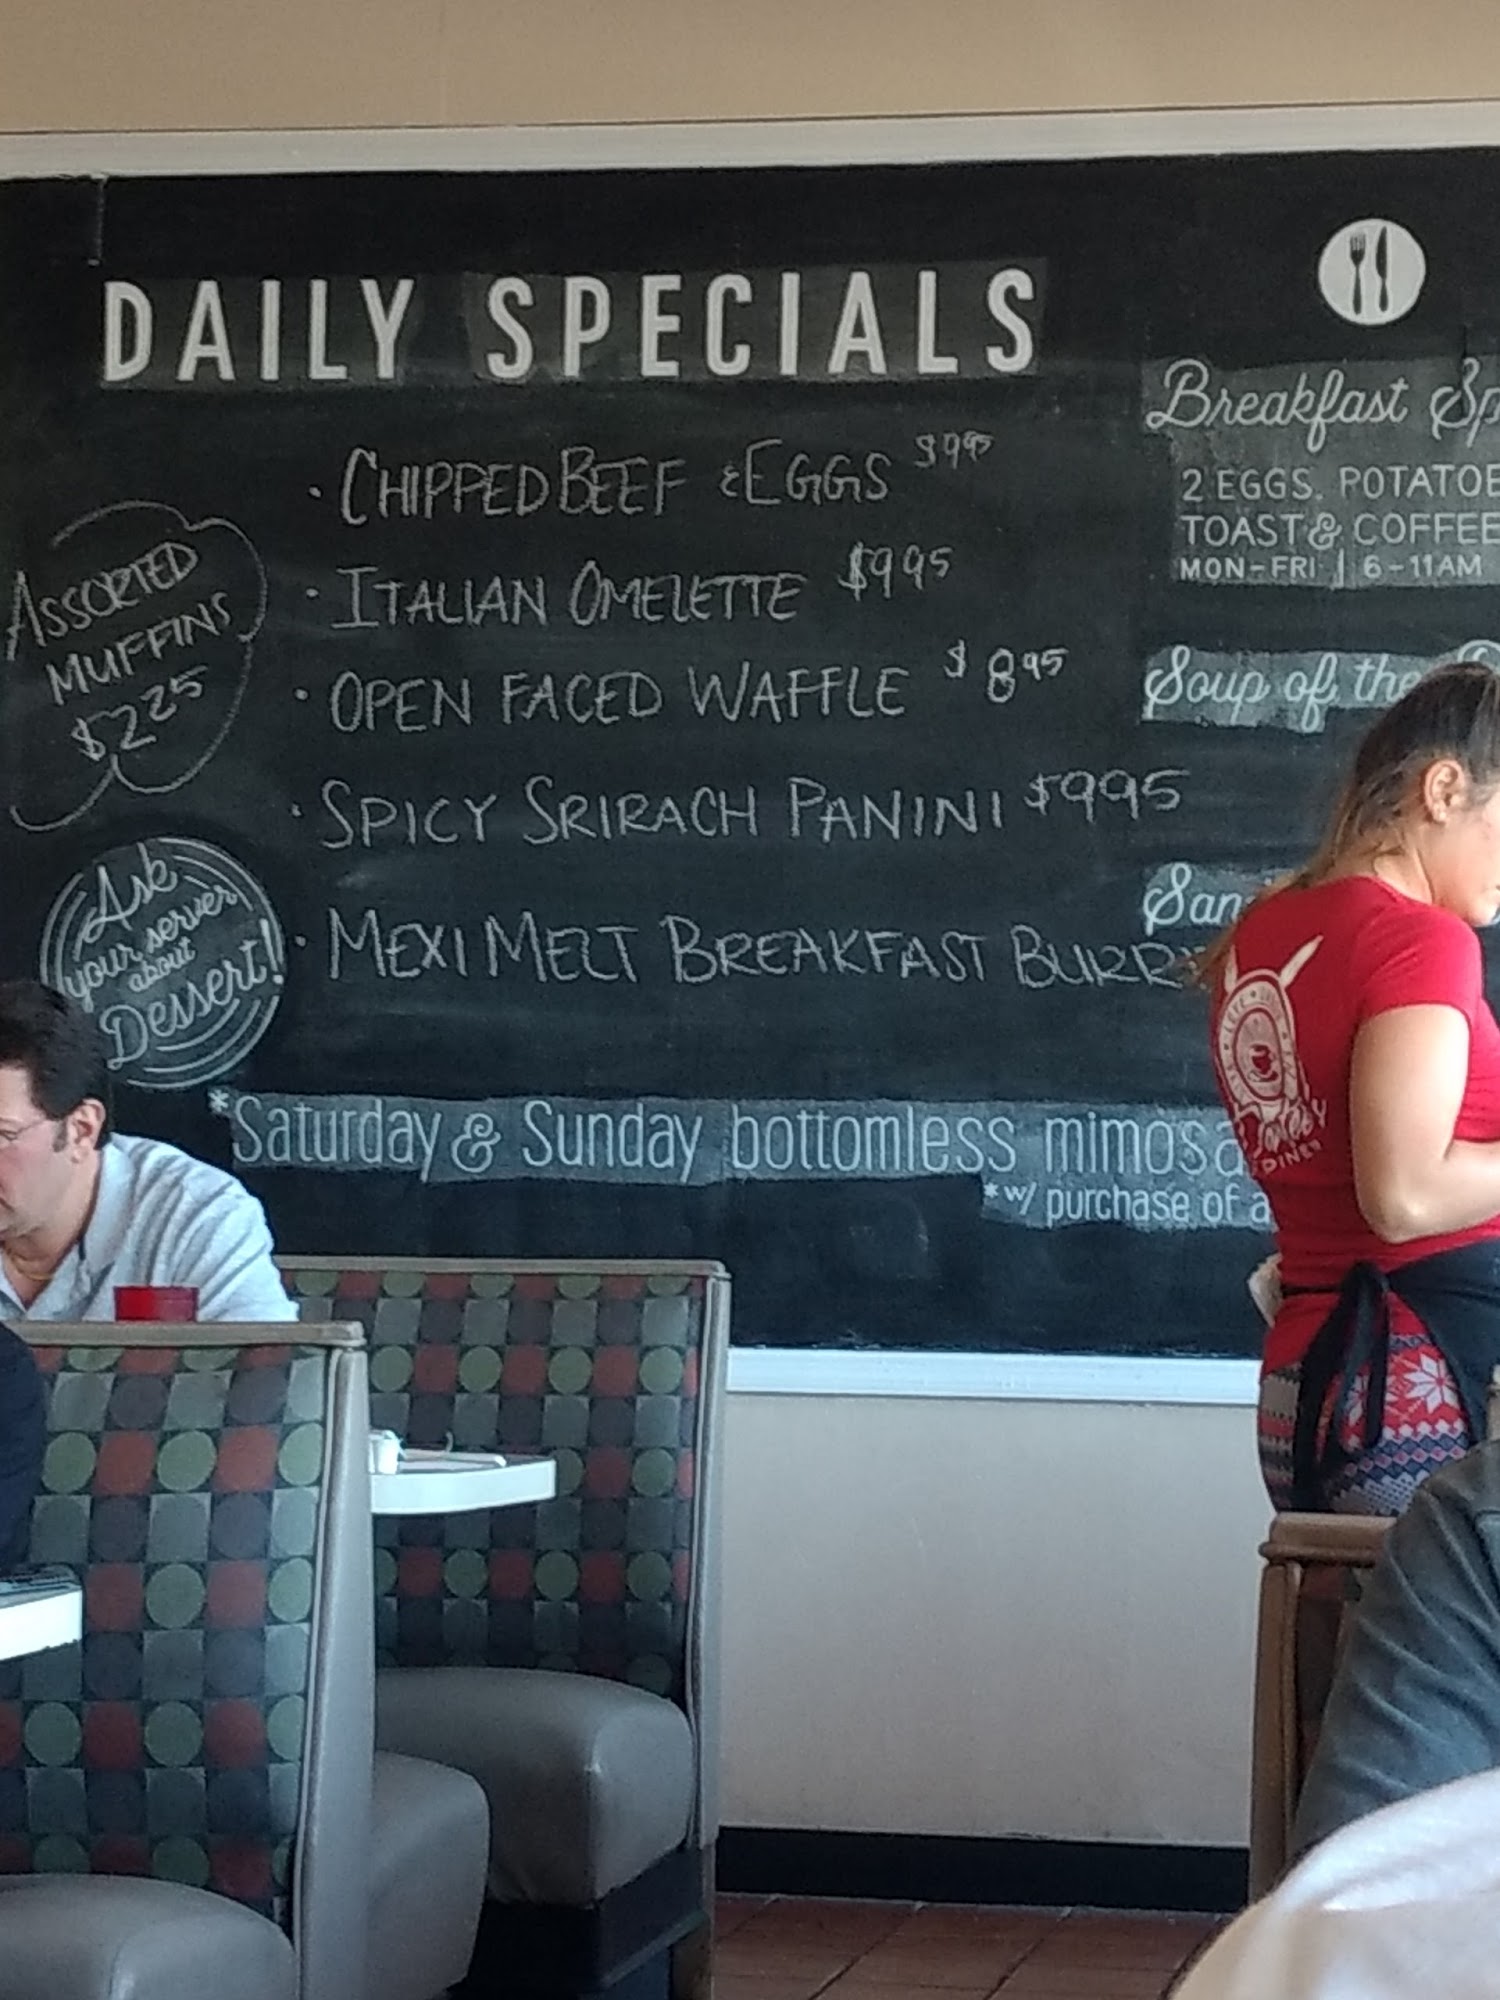 DAILY SPECIALS
• CHIPPED BEEF & EGGS $9.95
• ITALIAN OMELETTE $9.95
• OPEN FACED WAFFLE $8.95
• SPICY SRIRACH PANINI $9.95
• MEXI MELT BREAKFAST BURR
ASSORTED
MUFFINS
$2.25
Ask
your server
about
Dessert!
*Saturday & Sunday bottomless mimosa
*w/ purchase of a
Breakfast Sp
2 EGGS, POTATOE
TOAST & COFFEE
MON-FRI | 6-11AM
Soup of the
San
DINER